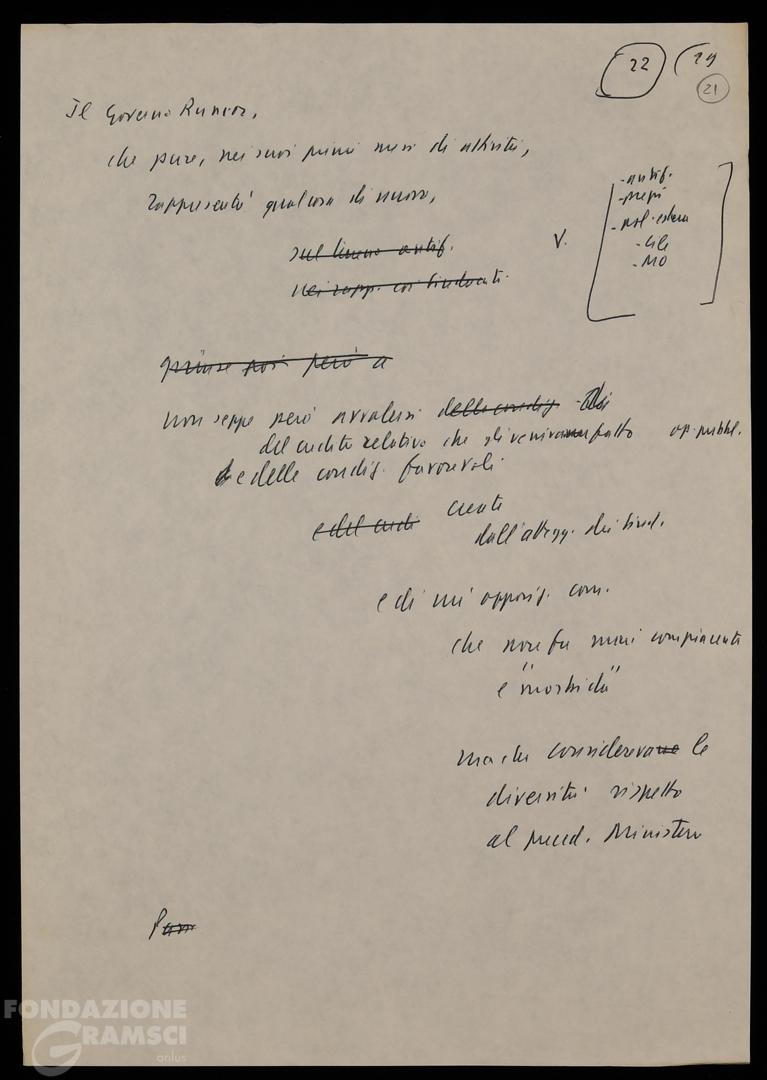 22 (19
21
Il Governo Rumor,
che pure, nei suoi primi mesi di attività,
rappresentò qualcosa di nuovo,
sul terreno antif.
nei rapp. coi sindacati
V.
- antif.
- prezzi
- pol. estera
- Cile
- MO
giunse poi però a
non seppe però avvalersi delle condiz.
del credito relativo che gli veniva fatto op. pubbl.
e delle condiz. favorevoli
e del credi create
dall'attegg. dei sind.
e di un'opposiz. com.
che non fu mai compiacente
e "morbida"
ma che considerava le
diversità rispetto
al preced. Ministero
FONDAZIONE
GRAMSCI
onlus